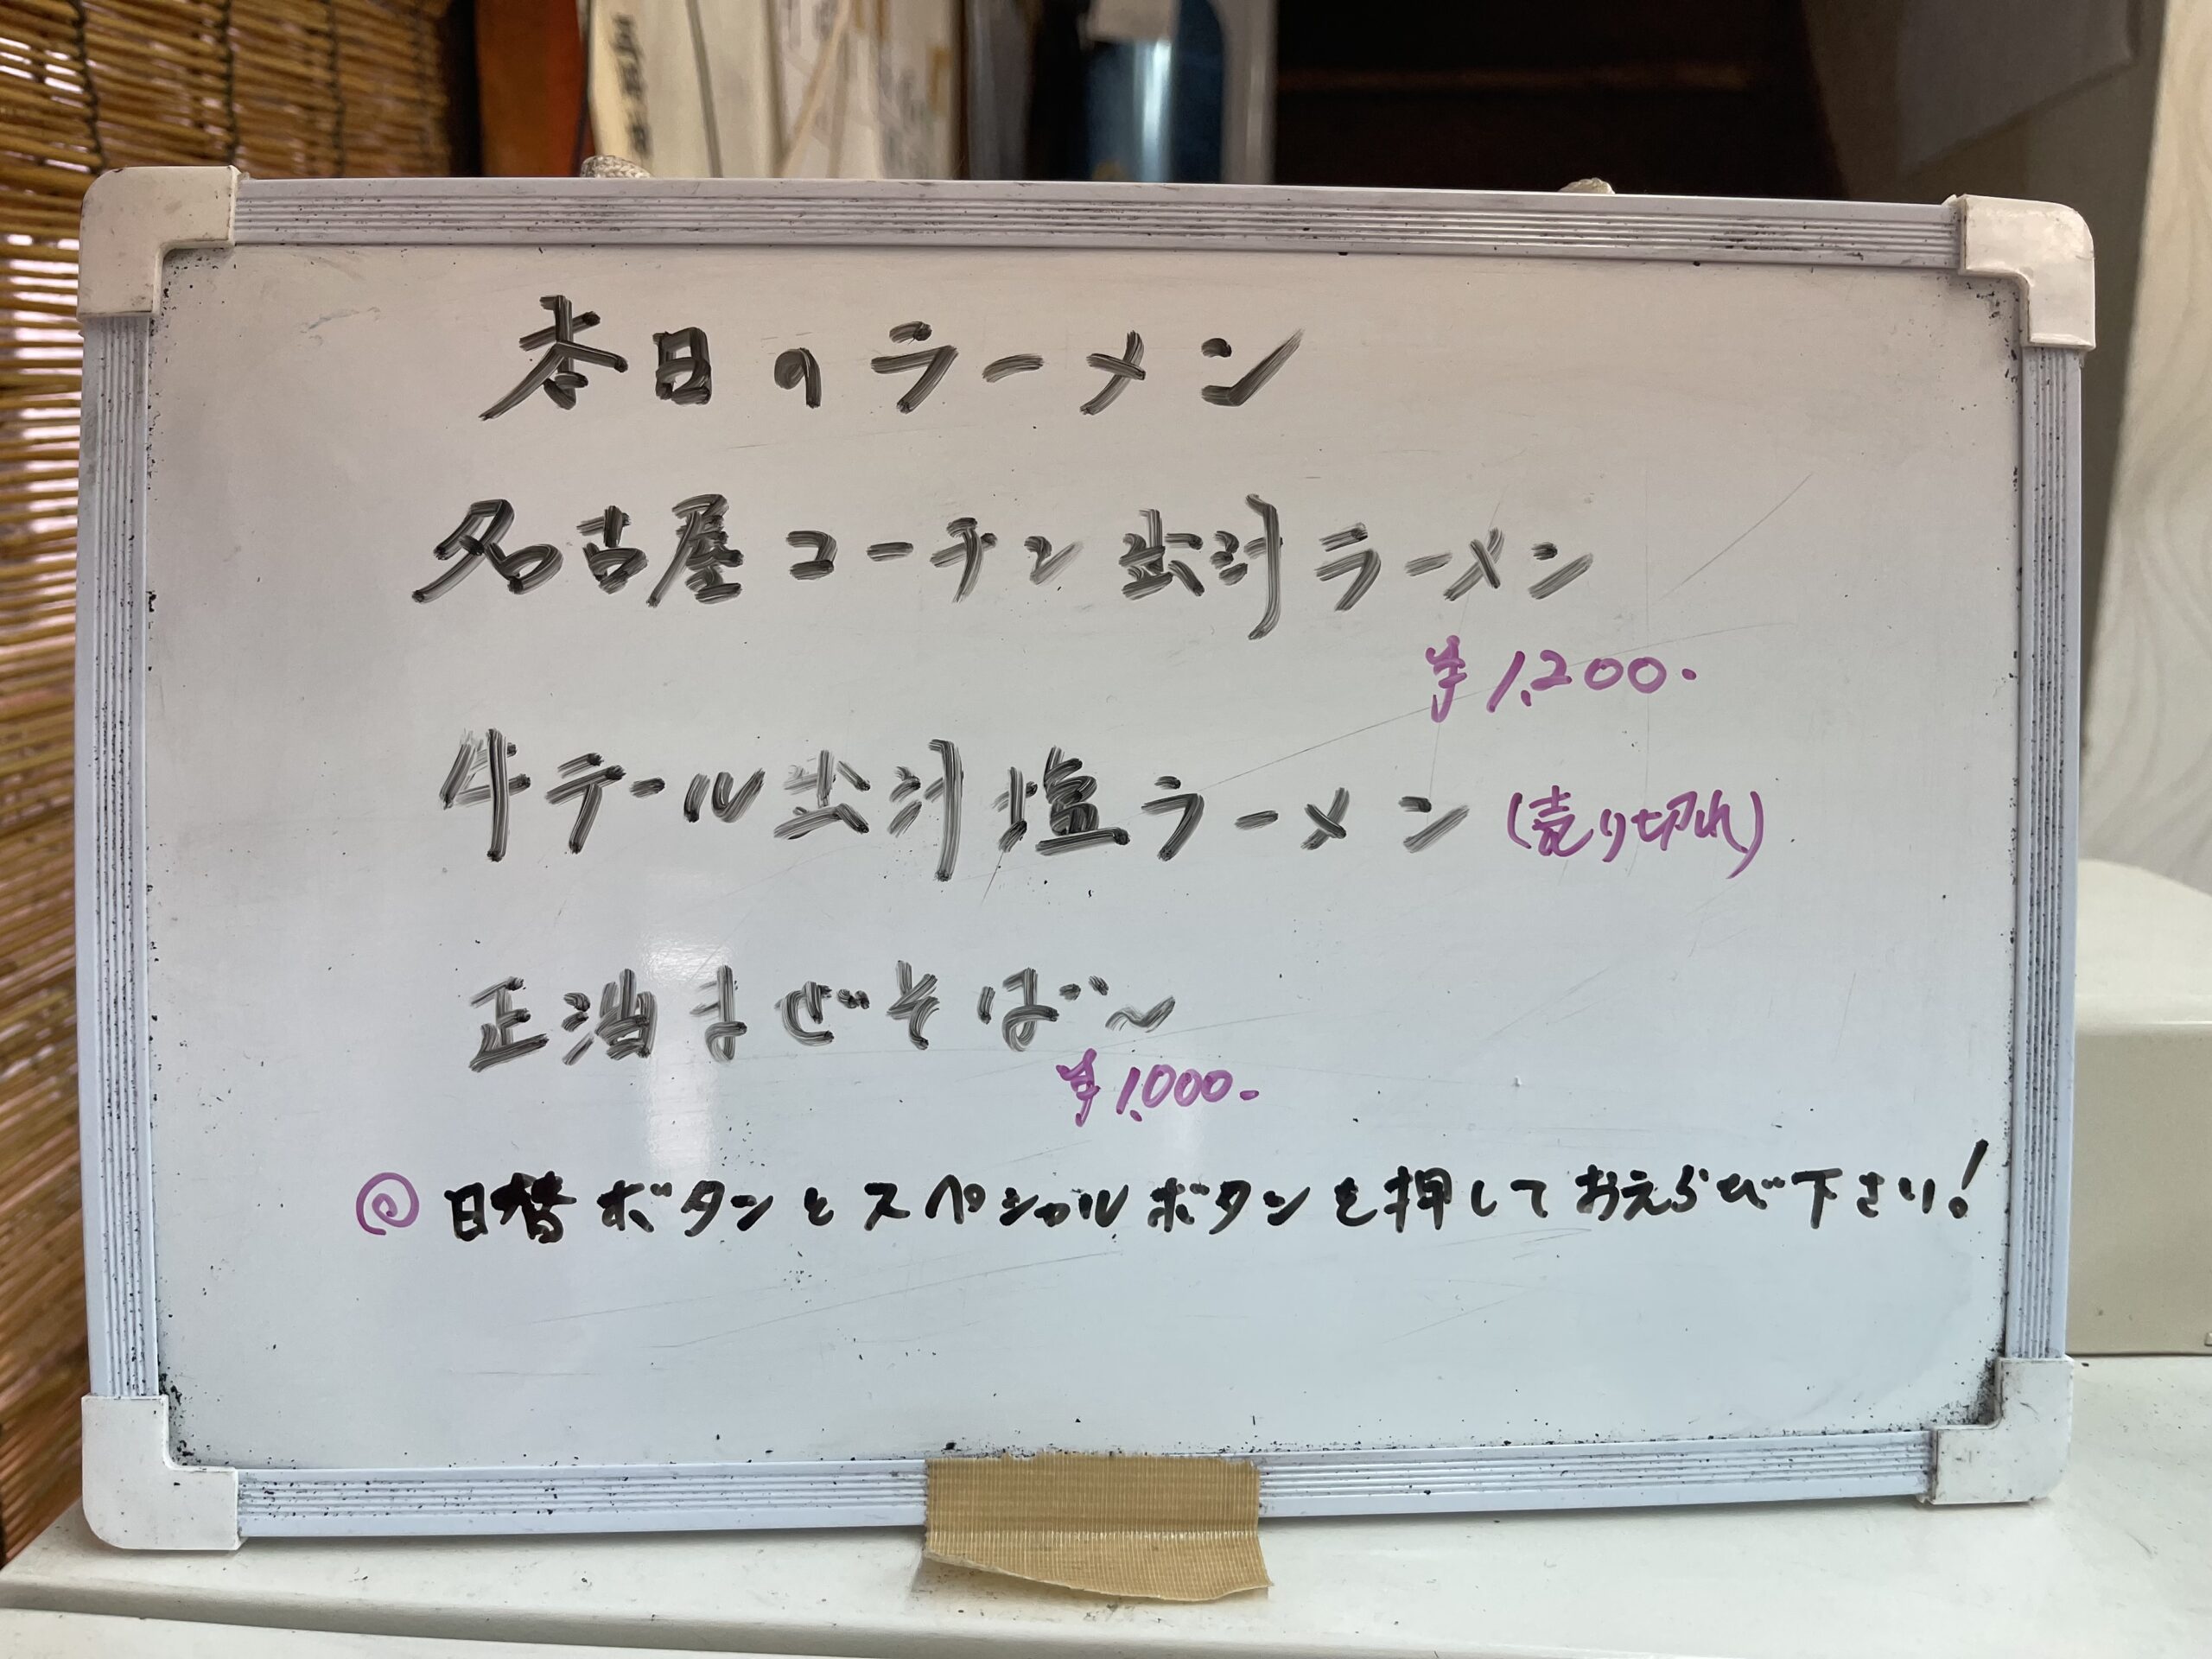 本日のラーメン
名古屋コーチン出汁ラーメン
¥1,200.
牛テール出汁塩ラーメン (売り切れ)
正油まぜそば〜
¥1,000.
◎日替ボタンとスペシャルボタンを押しておえらび下さい!